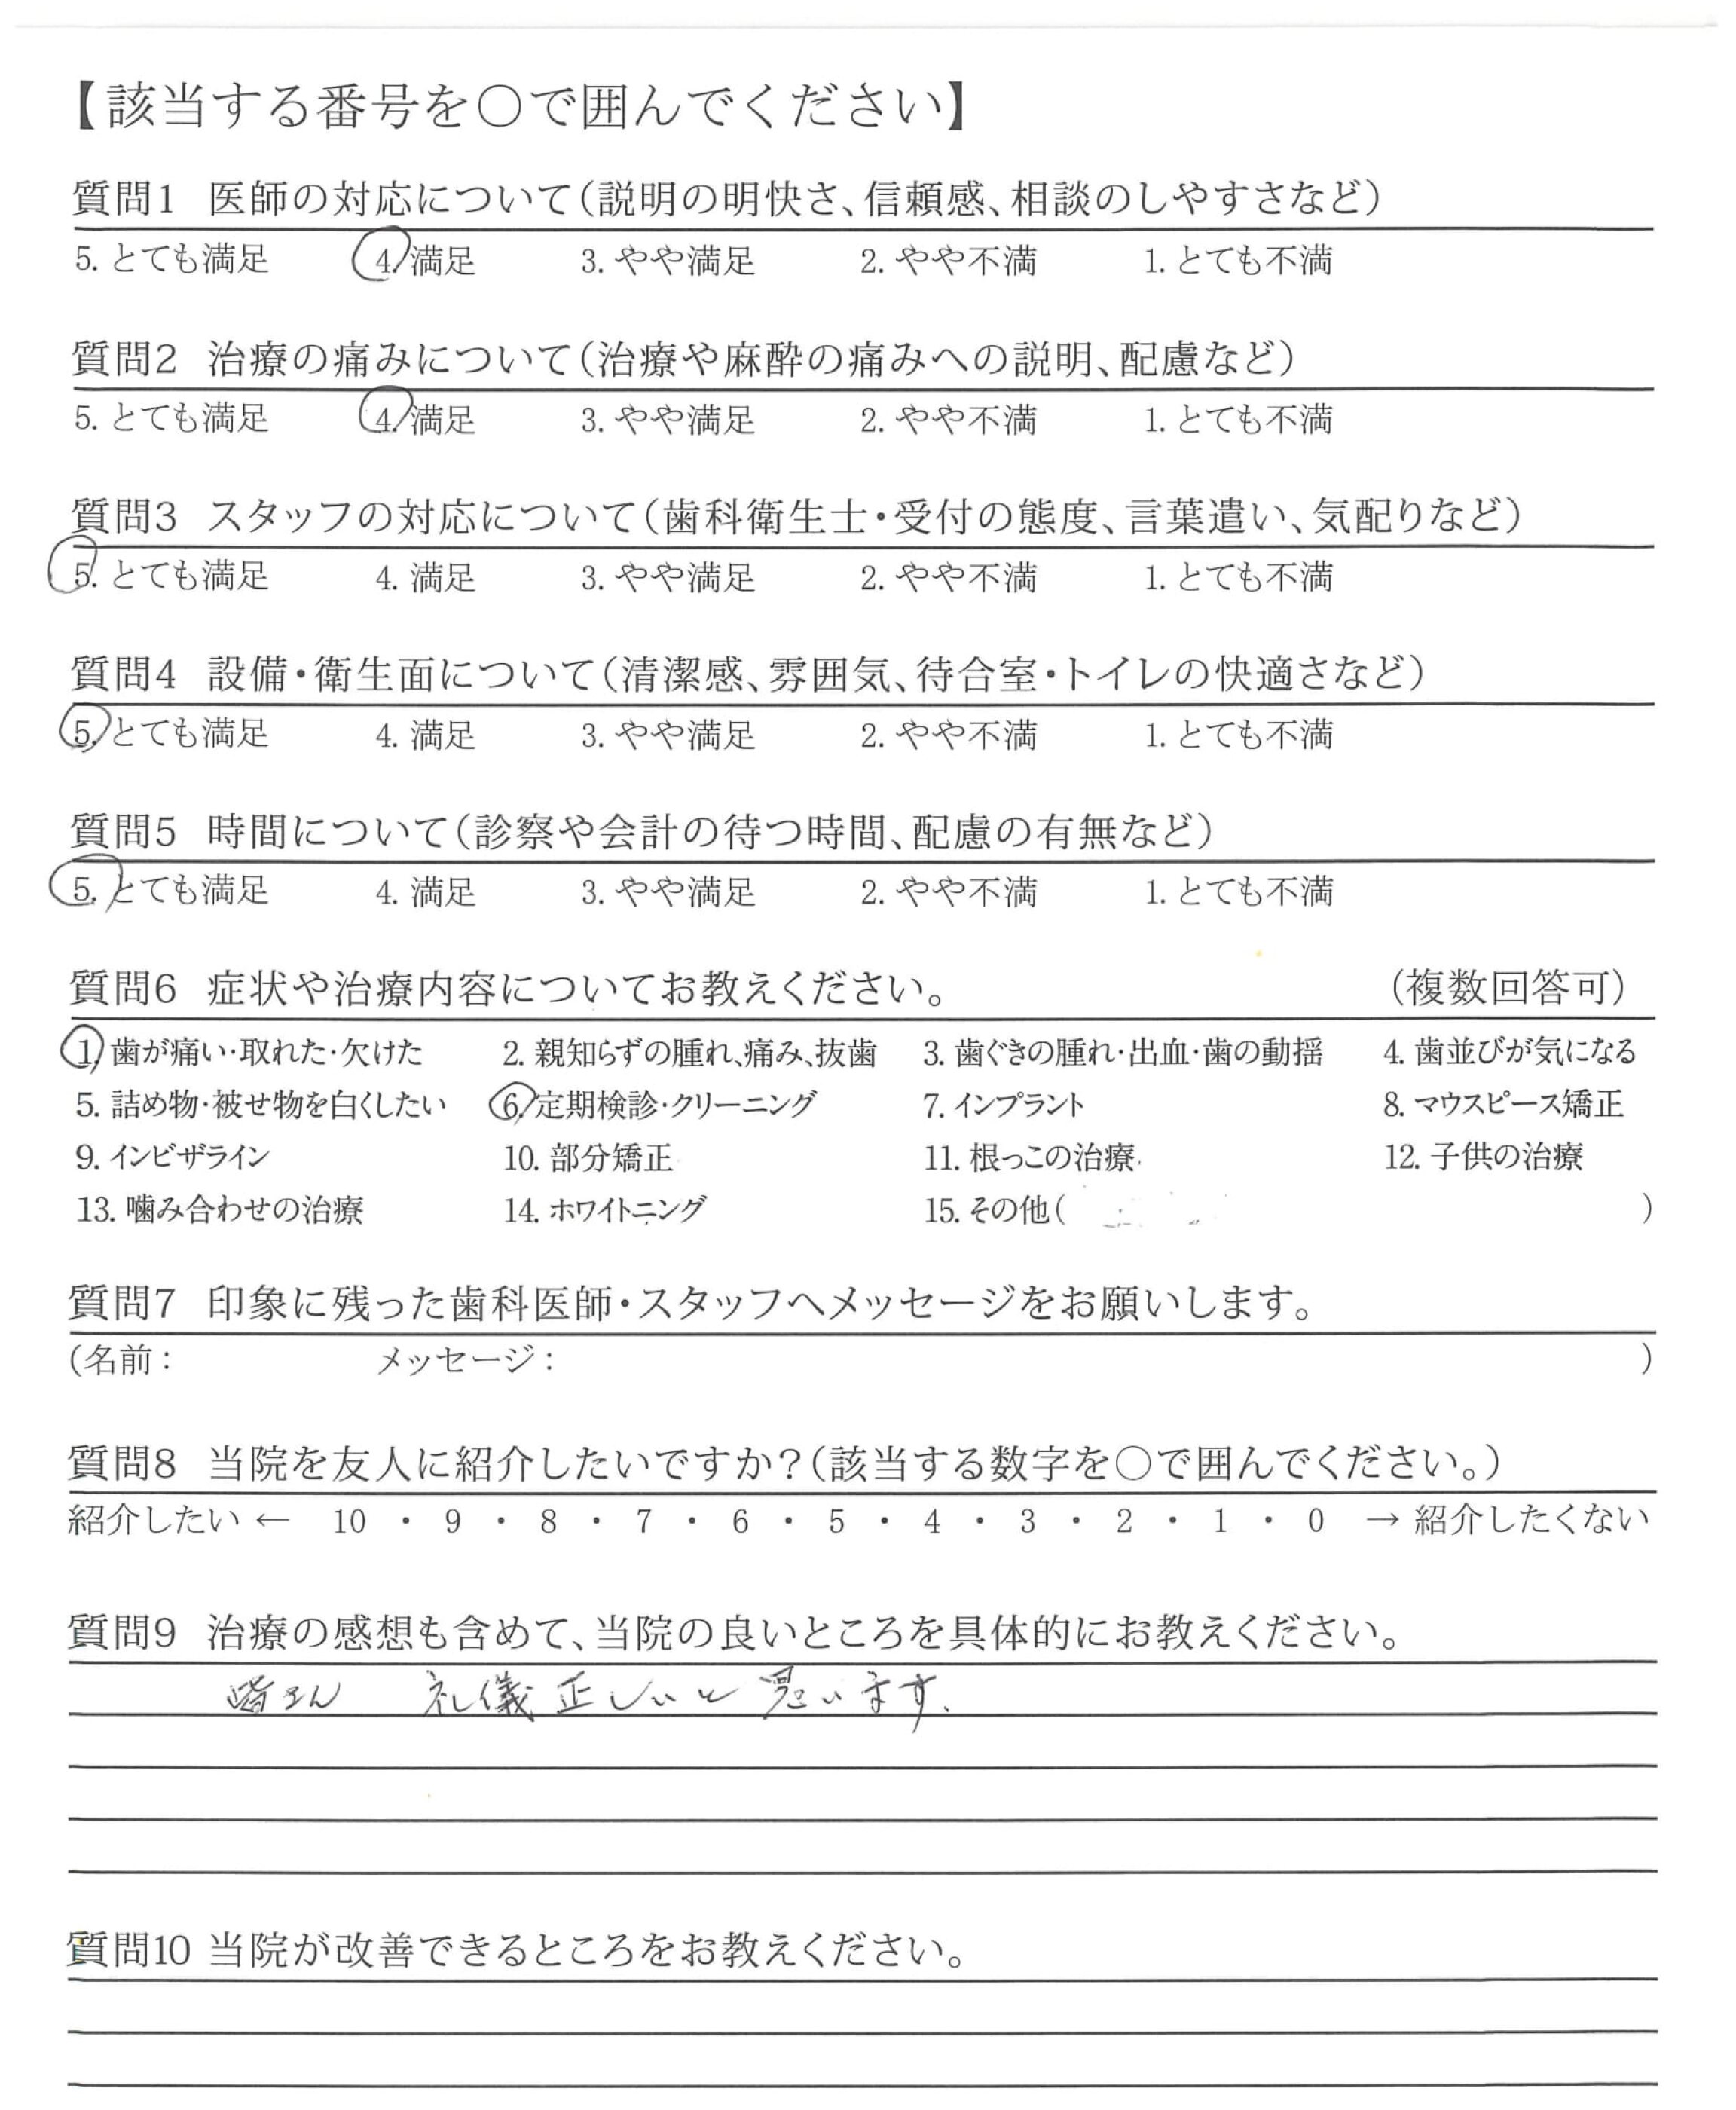 【該当する番号を○で囲んでください】
質問1 医師の対応について(説明の明快さ、信頼感、相談のしやすさなど)
5. とても満足 4. 満足 3. やや満足 2. やや不満 1. とても不満
質問2 治療の痛みについて(治療や麻酔の痛みへの説明、配慮など)
5. とても満足 4. 満足 3. やや満足 2. やや不満 1. とても不満
質問3 スタッフの対応について(歯科衛生士・受付の態度、言葉遣い、気配りなど)
5. とても満足 4. 満足 3. やや満足 2. やや不満 1. とても不満
質問4 設備・衛生面について(清潔感、雰囲気、待合室・トイレの快適さなど)
5. とても満足 4. 満足 3. やや満足 2. やや不満 1. とても不満
質問5 時間について(診察や会計の待つ時間、配慮の有無など)
5. とても満足 4. 満足 3. やや満足 2. やや不満 1. とても不満
質問6 症状や治療内容についてお教えください。 (複数回答可)
1. 歯が痛い・取れた・欠けた 2. 親知らずの腫れ、痛み、抜歯 3. 歯ぐきの腫れ・出血・歯の動揺 4. 歯並びが気になる
5. 詰め物・被せ物を白くしたい 6. 定期検診・クリーニング 7. インプラント 8. マウスピース矯正
9. インビザライン 10. 部分矯正 11. 根っこの治療 12. 子供の治療
13. 噛み合わせの治療 14. ホワイトニング 15. その他( )
質問7 印象に残った歯科医師・スタッフへメッセージをお願いします。
(名前: メッセージ: )
質問8 当院を友人に紹介したいですか?(該当する数字を○で囲んでください。)
紹介したい ← 10 ・ 9 ・ 8 ・ 7 ・ 6 ・ 5 ・ 4 ・ 3 ・ 2 ・ 1 ・ 0 → 紹介したくない
質問9 治療の感想も含めて、当院の良いところを具体的にお教えください。
皆さん 礼儀正しいと思います.
質問10 当院が改善できるところをお教えください。